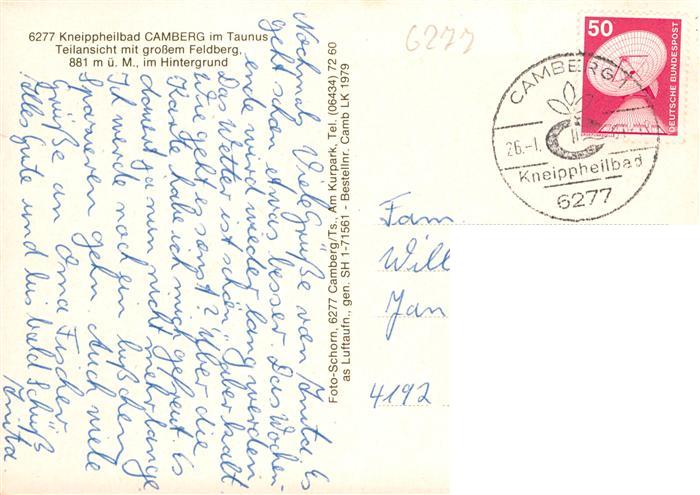 6277 Kneippheilbad CAMBERG im Taunus
Teilansicht mit großem Feldberg,
881 m ü. M., im Hintergrund
Nochmals Viele Grüße von Anita Es
geht schon etwas besser. Das Wochen-
ende wird wieder lang werden.
Das Wetter ist schön aber kalt
Wie geht es sonst? Über die
Karte habe ich mich gefreut Es
dauert ja nun nicht mehr lange
Ich werde noch ein bißchen
Spazieren gehn. Auch viele
Grüße an Oma Fischer
Alles Gute und bis bald Tschüß
Anita
Foto-Schorn, 6277 Camberg/Ts., Am Kurpark, Tel. (06434) 72 60
as Luftaufn., gen. SH 1-71561 - Bestellnr. Camb LK 1979
6277
50
DEUTSCHE BUNDESPOST
CAMBERG 1
26.-1.
Kneippheilbad
6277
Fam.
Will
Jan
4192